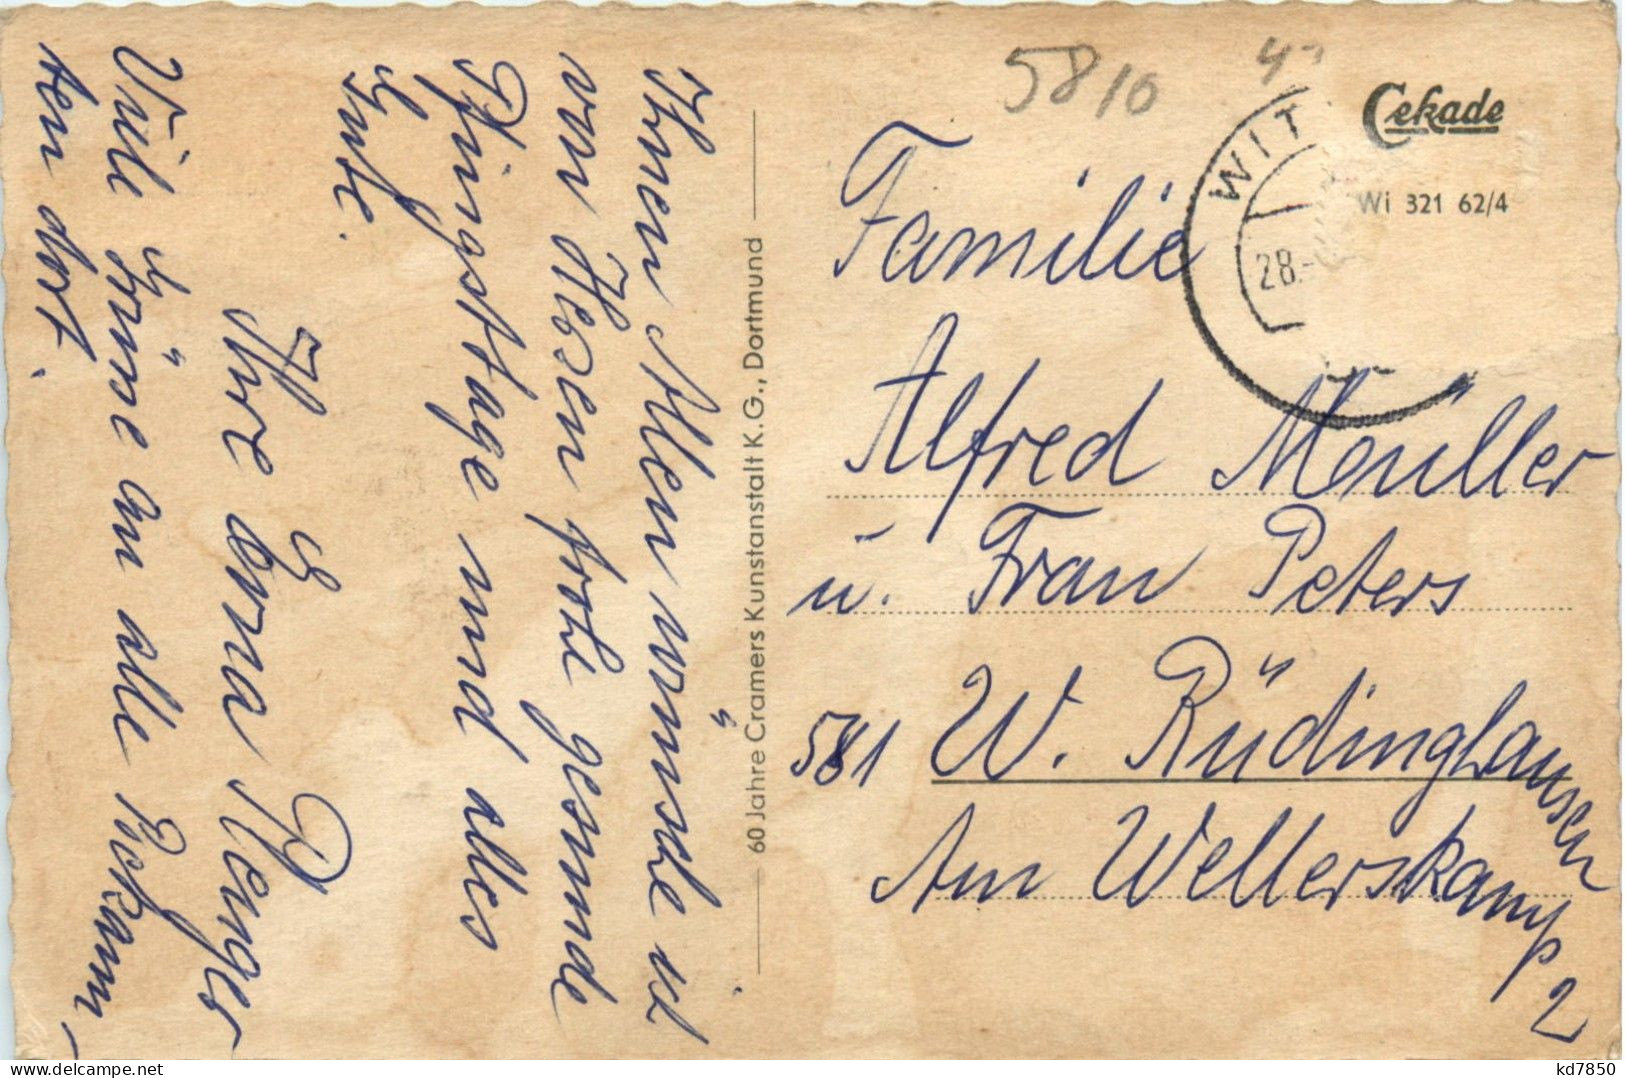 5810
Cekade
WIT
Wi 321 62/4
28.
Ihnen Allen wünsche ich
von Herzen frohe gesunde
Pfingsttage und alles
Gute.
Ihre Erna
Viele Grüße an alle Bekann-
ten dort.
60 Jahre Cramers Kunstanstalt K.G., Dortmund
Familie
Alfred Müller
u. Frau Peters
581 W. Rüdinghausen
Am Wellerskamp 2
kd7850